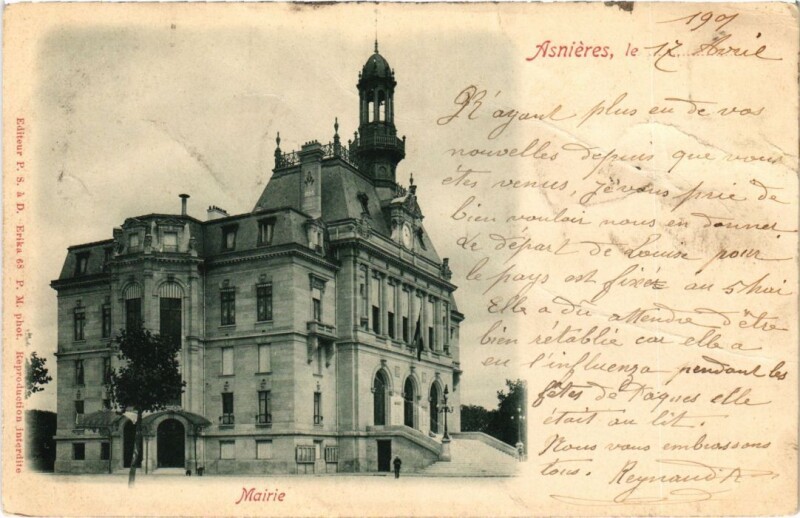 1901
Asnières, le 17 Avril
N'ayant plus eu de vos
nouvelles depuis que vous
êtes venus, je vous prie de
bien vouloir nous en donner
Le départ de Louise pour
le pays est fixé au 5 Mai
Elle a du attendre d'être
bien rétablie car elle a
eu l'influenza pendant les
fêtes de Paques elle
était au lit.
Nous vous embrassons
tous. Reynaud
Mairie
Editeur P. S. à D. Erika 68 P. M. phot. Reproduction interdite